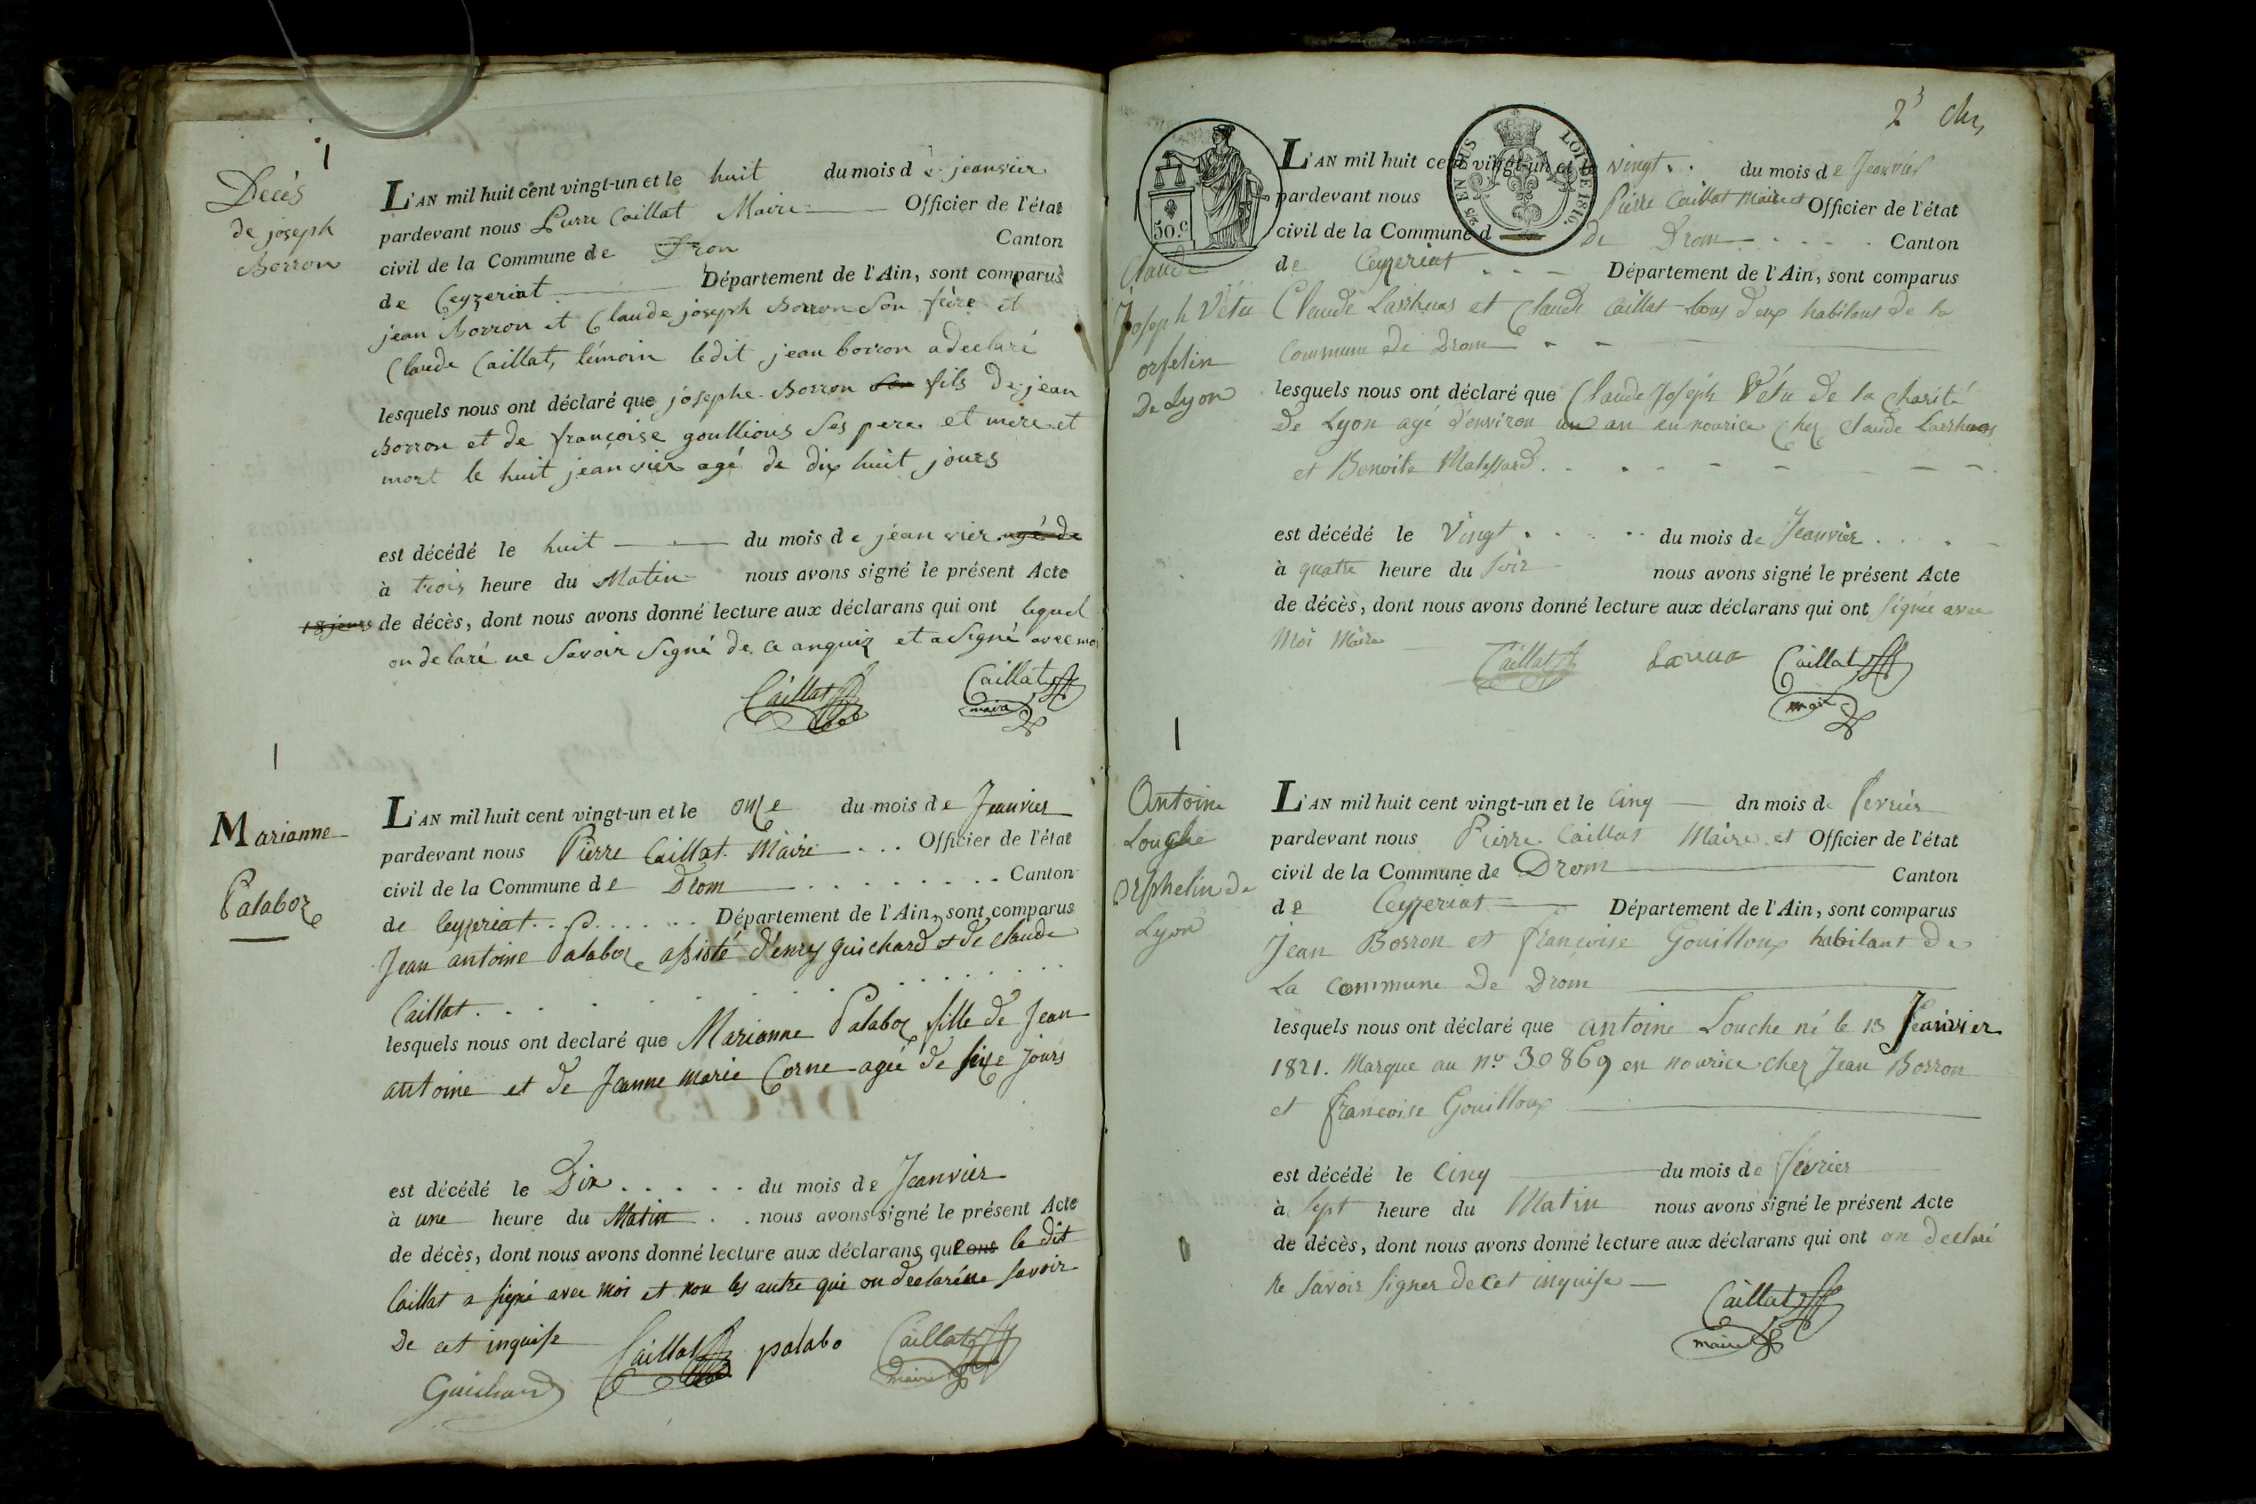 1
Decès
de joseph
Borron
L'AN mil huit cent vingt-un et le huit du mois de jeanvier
pardevant nous Pierre Caillat Maire Officier de l'état
civil de la Commune de Dron Canton
de Ceyzeriat Département de l'Ain, sont comparus
jean Borron et Claude joseph Borron son frère et
Claude Caillat, témoin ledit jean borron adeclaré
lesquels nous ont déclaré que josephe Borron son fils de jean
Borron et de françoise goullious ses pere et mere et
mort le huit jeanvier agé de dix huit jours
est décédé le huit du mois de jéanvier agé de
à trois heure du Matin nous avons signé le présent Acte
18 jours de décès, dont nous avons donné lecture aux déclarans qui ont lequel
on delaré ne Savoir Signé de ce anquiz et a Signé avec moi
Caillat Caillat
maire
1
Marianne
Palaboz
L'AN mil huit cent vingt-un et le onze du mois de Jeanvier
pardevant nous Pierre Caillat Maire Officier de l'état
civil de la Commune de Drom Canton
de Ceyzeriat Département de l'Ain, sont comparus
Jean antoine Palaboz assisté d'enry guichard et de claude
Caillat
lesquels nous ont declaré que Marianne Palaboz fille de Jean
antoine et de Jeanne marie Corne agée de seize Jours
est décédé le Dix du mois de Jeanvier
à une heure du Matin nous avons signé le présent Acte
de décès, dont nous avons donné lecture aux déclarans que ont le dit
Caillat a signé avec moi et non les autre qui on declaré ne savoir
De cet inquise Caillat palabo Caillat
maire
Guichard
2
L'AN mil huit cent vingt-un et le vingt du mois de Jeanvier
50.c
25 EN SUS
LOI DE 1816.
pardevant nous Pierre Caillat Maire et Officier de l'état
civil de la Commune d de Drom Canton
de Ceyzeriat Département de l'Ain, sont comparus
Claude
Joseph Vétu
orfelin
De Lyon
Claude Larrhuas et Claude Caillat tous deux habitant de la
Commune de Drom
lesquels nous ont déclaré que Claude Joseph Vétu de la charité
De Lyon agé d'environ un an en nourice chez Claude Larrhuas
et Benoite Malessard
est décédé le Vingt du mois de Jeanvier
à quatre heure du soir nous avons signé le présent Acte
de décès, dont nous avons donné lecture aux déclarans qui ont signée avec
Moi Maire
Caillat Larrua Caillat
maire
1
Antoine
Louche
Orphelin de
Lyon
L'AN mil huit cent vingt-un et le Cinq dn mois de fevrier
pardevant nous Pierre Caillat Maire et Officier de l'état
civil de la Commune de Drom Canton
de Ceyzeriat Département de l'Ain, sont comparus
Jean Borron et françoise Gouilloux habitant de
La commune De Drom
lesquels nous ont déclaré que antoine Louche né le 13 Jeanvier
1821. Marque au n.º 30869 en nourice chez Jean Borron
et françoise Gouilloux
est décédé le Cinq du mois de fevrier
à Sept heure du Matin nous avons signé le présent Acte
de décès, dont nous avons donné lecture aux déclarans qui ont on declaré
Ne Savoir Signer de cet inquise
Caillat
maire